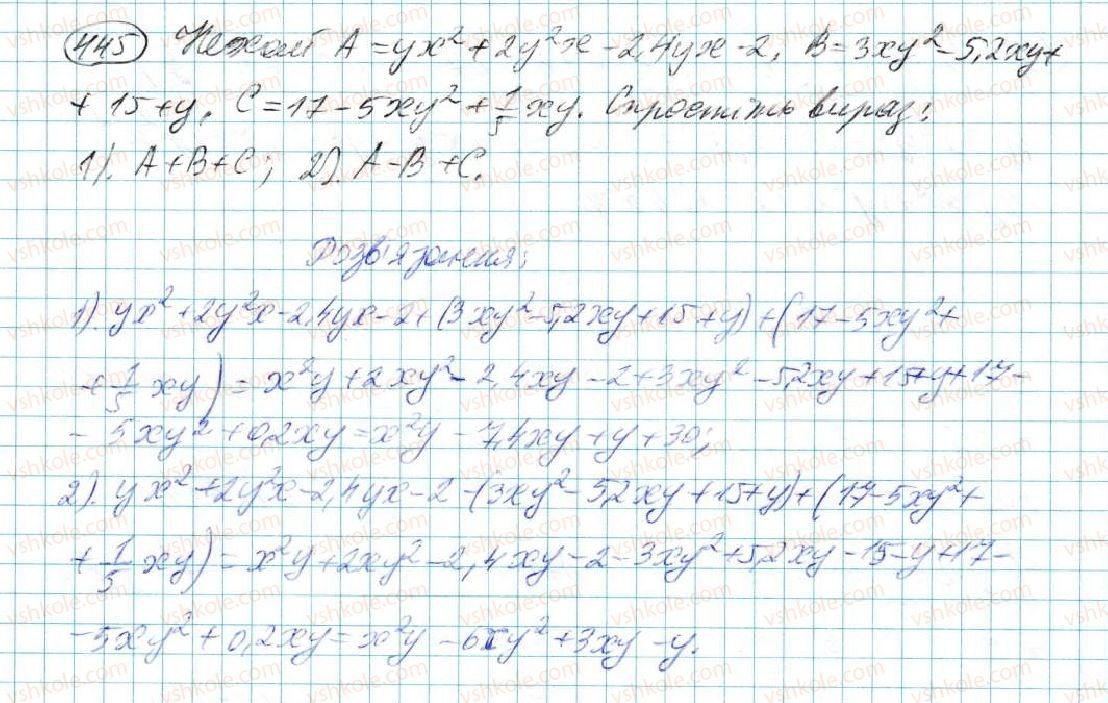 445 Нехай A = yx² + 2y²x - 2,4yx - 2, B = 3xy² - 5,2xy +
+ 15 + y, C = 17 - 5xy² + 1/5 xy. Спростіть вираз:
1). A + B + C; 2). A - B + C.
Розв'язання:
1). yx² + 2y²x - 2,4yx - 2 + (3xy² - 5,2xy + 15 + y) + (17 - 5xy² +
+ 1/5 xy) = x²y + 2xy² - 2,4xy - 2 + 3xy² - 5,2xy + 15 + y + 17 -
- 5xy² + 0,2xy = x²y - 7,4xy + y + 30;
2). yx² + 2y²x - 2,4yx - 2 - (3xy² - 5,2xy + 15 + y) + (17 - 5xy² +
+ 1/5 xy) = x²y + 2xy² - 2,4xy - 2 - 3xy² + 5,2xy - 15 - y + 17 -
- 5xy² + 0,2xy = x²y - 6xy² + 3xy - y.
vshkole.com